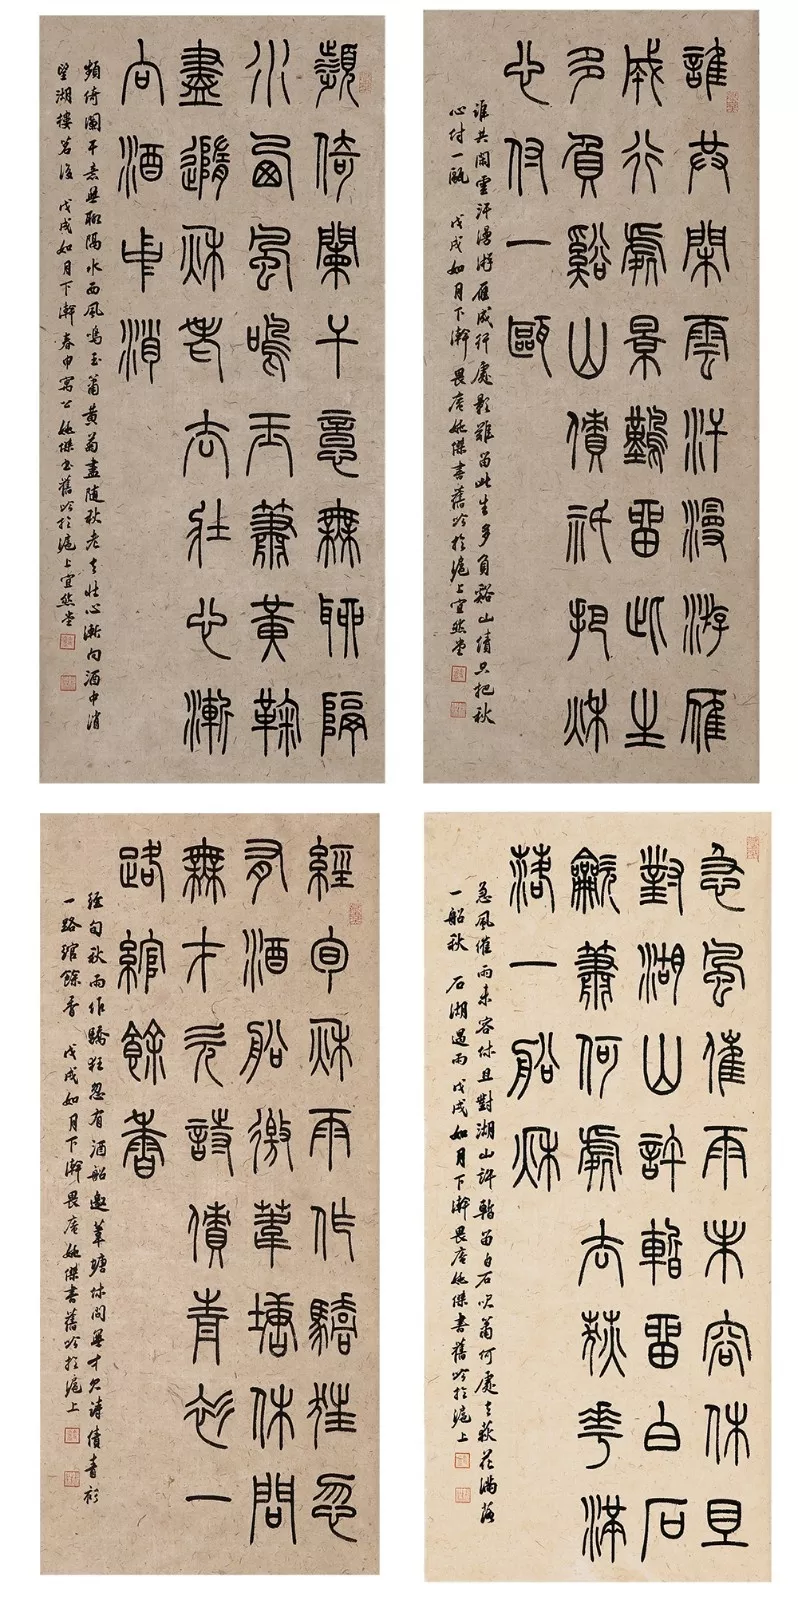 誰共閑雲汗漫游雁
成行處景難留此生
多負谿山債祇把秋
心付一甌
誰共閒雲汗漫游雁成行處影難留此生多負谿山債只把秋
心付一甌 戊戌如月下澣畏庵姚傑書舊吟於滬上宜然堂
頻倚闌干意無聊隔
水西風鳴玉簫黃鞠
盡隨秋老去壯心漸
向酒中消
頻倚闌干意無聊隔水西風鳴玉簫黃菊盡隨秋老去壯心漸向酒中消
望湖樓茗後 戊戌如月下澣春申寓公姚傑書舊吟於滬上宜然堂
急風催雨未容休且
對湖山許暫留白石
龡簫何處去荻花滿
落一船秋
急風催雨未容休且對湖山許暫留白石吹簫何處去荻花滿落
一船秋 石湖遇雨 戊戌如月下澣畏庵姚傑書舊吟於滬上
經旬秋雨作驕狂忽
有酒船邀葦塘休問
無才欠詩債青衫一
路綰餘香
經旬秋雨作驕狂忽有酒船邀葦塘休問無才欠詩債青衫
一路綰餘香 戊戌如月下澣畏庵姚傑書舊吟於滬上